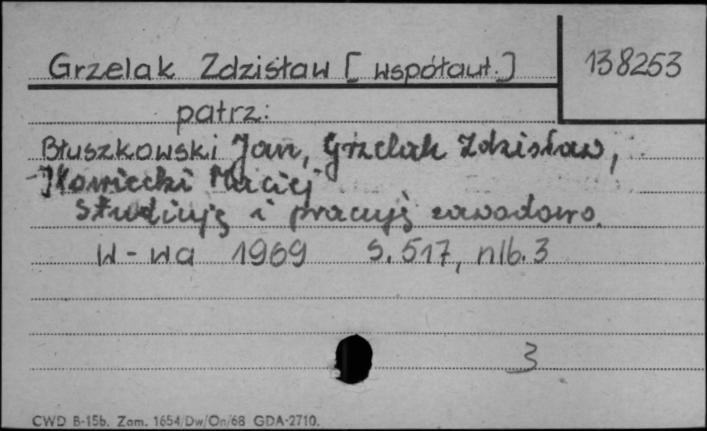 Grzelak Zdzisław [współaut.]
138253
patrz:
Błuszkowski Jan, Grzelak Zdzisław,
Iłowiecki Maciej
Studiuję i pracuję zawodowo.
W-wa 1969 S. 517, nlb. 3
3
CWD B-15b. Zam. 1654/Dw/On/68 GDA-2710.